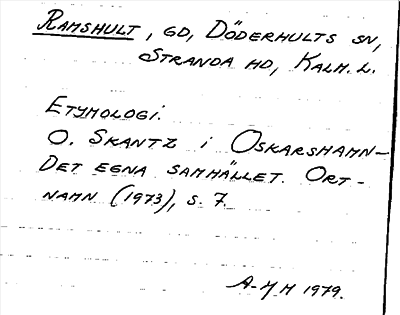 RAMSHULT, GD, DÖDERHULTS SN,
STRANDA HD, KALM. L.
ETYMOLOGI.
O. SKANTZ i OSKARSHAMN-
DET EGNA SAMHÄLLET. ORT-
NAMN (1973), S. 7.
A-MH 1979.